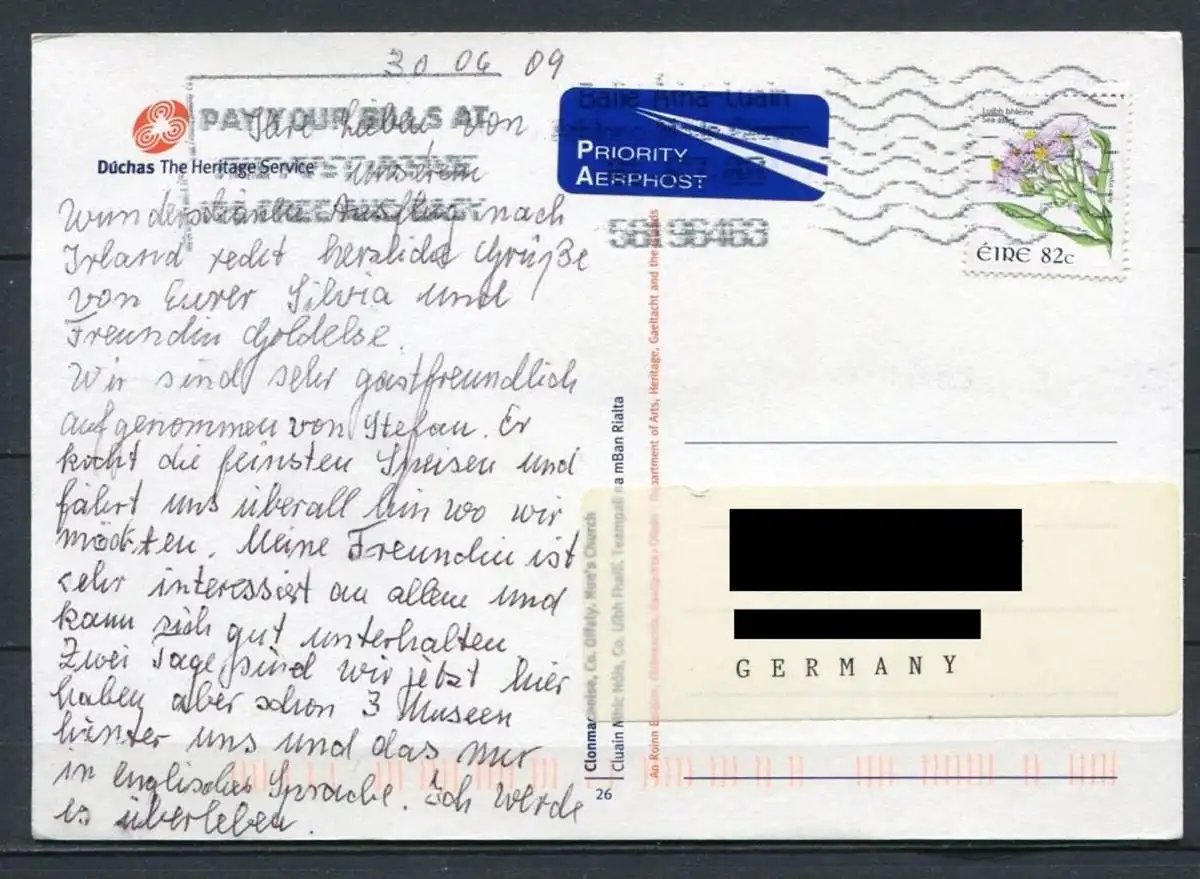 30 06 09
PAY YOUR BILLS AT
Dúchas The Heritage Service
Ihre lieben von
unserem
wunderschönen Ausflug nach
Irland recht herzliche Grüße
von Eurer Silvia und
Freundin Goldelse.
Wir sind sehr gastfreundlich
aufgenommen von Stefan. Er
kocht die feinsten Speisen und
fährt uns überall hin wo wir
möchten. Meine Freundin ist
sehr interessiert an allem und
kann sich gut unterhalten
Zwei Tage sind wir jetzt hier
haben aber schon 3 Museen
hinter uns und das nur
in englischer Sprache. Ich werde
es überleben.
Baile Átha Luain
PRIORITY
AERPHOST
58196483
Luibh bhléine
Sea aster
ÉIRE 82c
Clonmacnoise, Co. Offaly. Nun's Church
Cluain Mhic Nóis, Co. Uíbh Fhailí. Teampall na mBan Rialta
An Roinn Ealaíon, Oidhreachta, Gaeltachta Oileán Department of Arts, Heritage, Gaeltacht and the Islands
26
GERMANY